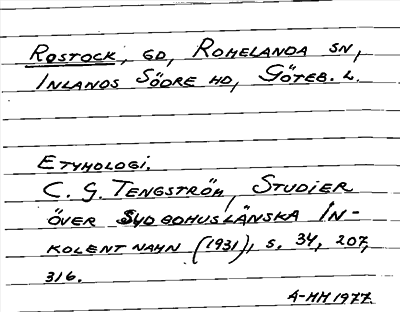 Rostock, GD, Romelanda sn,
Inlands Södre hd, Göteb. l.
Etymologi.
C. G. Tengström, Studier
över Sydbohuslänska In-
kolentnamn (1931), s. 34, 207,
316.
A-MH 1977